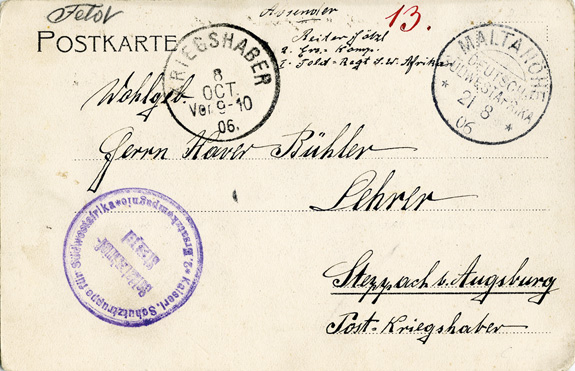 Feldpost
POSTKARTE
13.
Absender
Reiter
2. Ers. Komp.
2. Feld-Regt S.W. Afrika
KRIEGSHABER
8
OCT.
Vor. 9-10
06.
MALTAHÖHE
DEUTSCH-
SÜDWESTAFRIKA
21 8
06
Wohlgeb.
Herrn Xaver Bühler
Lehrer
Steppach b. Augsburg
Post-Kriegshaber
Kaiserl. Schutztruppe für Südwestafrika * 2. Ersatzkompagnie *
Soldatenbrief